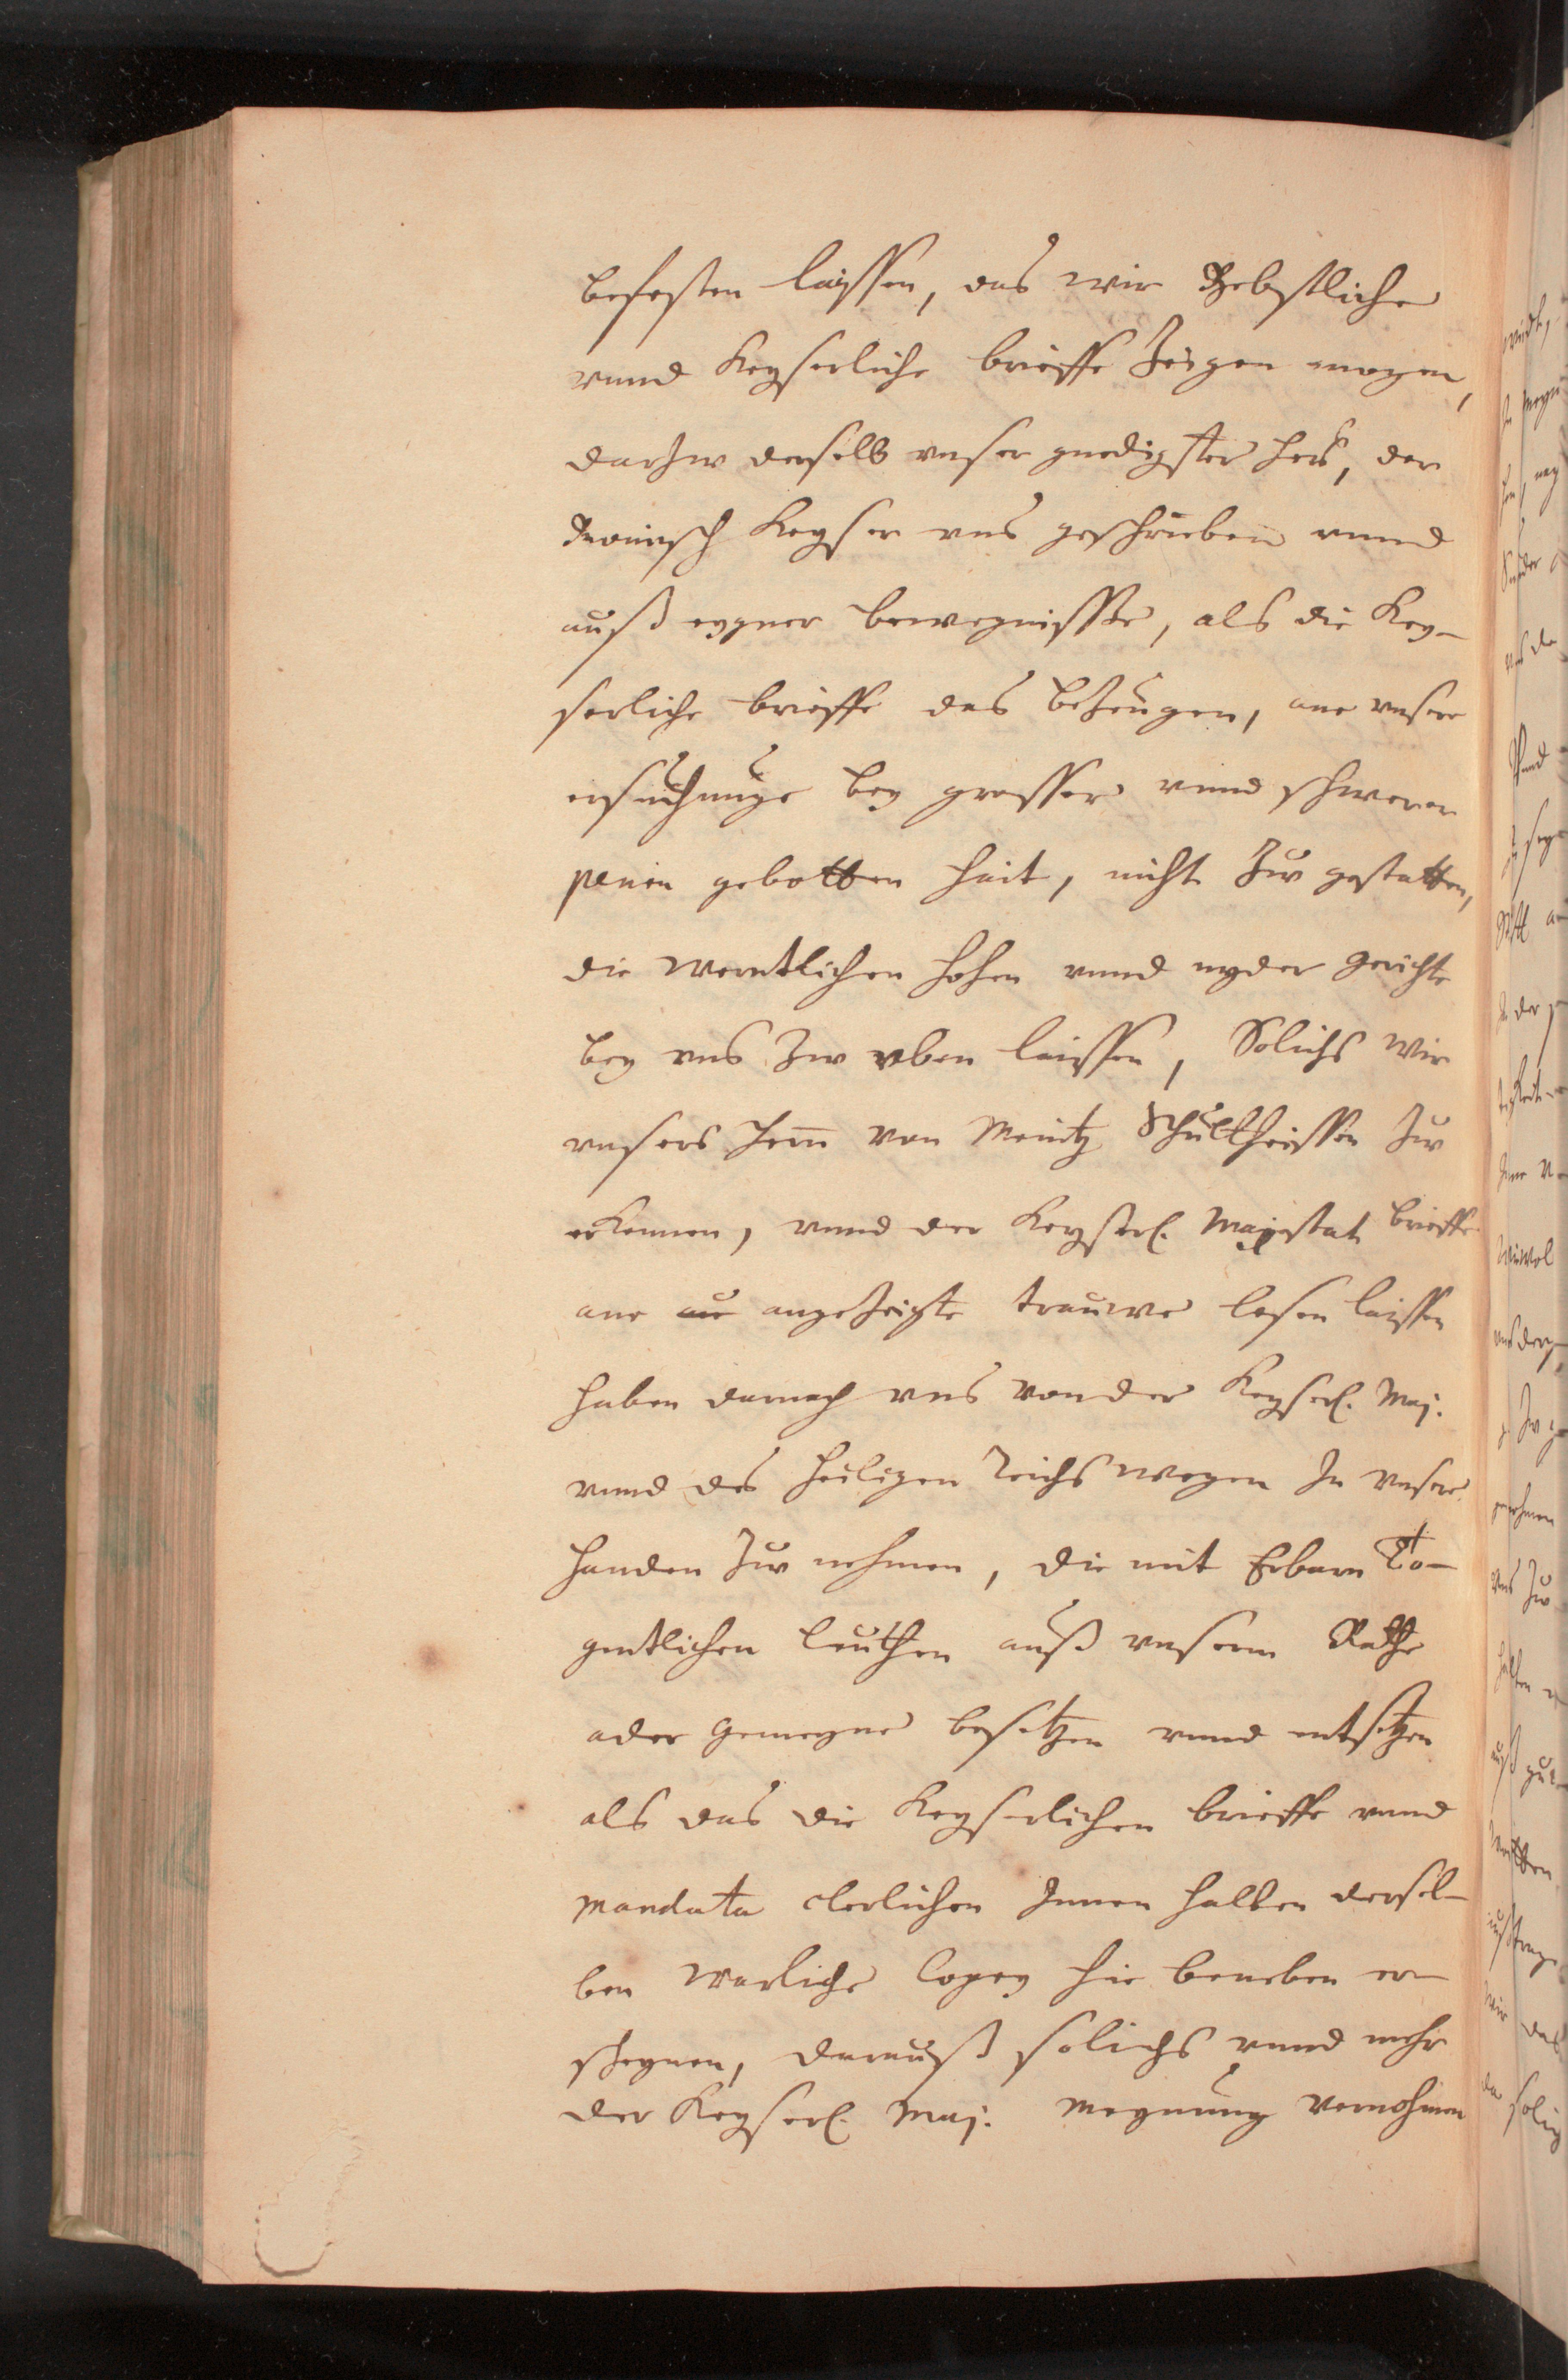 befesten laissen, das wir Bebstliche
vnnd Keyserliche brieffe Zeigen mogen,
darzw derselb vnser gnedigster her, der
Romisch Keyser vns geschrieben vnnd
auß eygner bewegnisse, als die Key-
serliche brieffe das bezeugen, ane vnsere
ersuchunge bey grosser vnnd schwerer
penen gebotten hait, nicht Zw gestatten,
die werntlichen hohen vnnd nyder gerichte
bey vns Zw vben laissen, Solichs wir
vnsers hern von Meintz Schultheissen Zw
erkennen, vnnd der Keyserl. Majestat brieffe
ane angezeigte trauwe lesen laissen
haben darnach vns von der Keyserl. Maj.
vnnd des heiligen Reichs wegen In vnsere
handen Zw nehmen, die mit Erbarn To-
gentlichen leuthen auß vnserm Rathe
ader gemeyne besetzen vnnd entsetzen
als das die Keyserlichen brieffe vnnd
mandata clerlichen Innen halten dersel-
ben warliche Copey hie beneben er-
scheynen, darauß solichs vnnd mehr
der Keyserl. Maj. meynung vernohmen